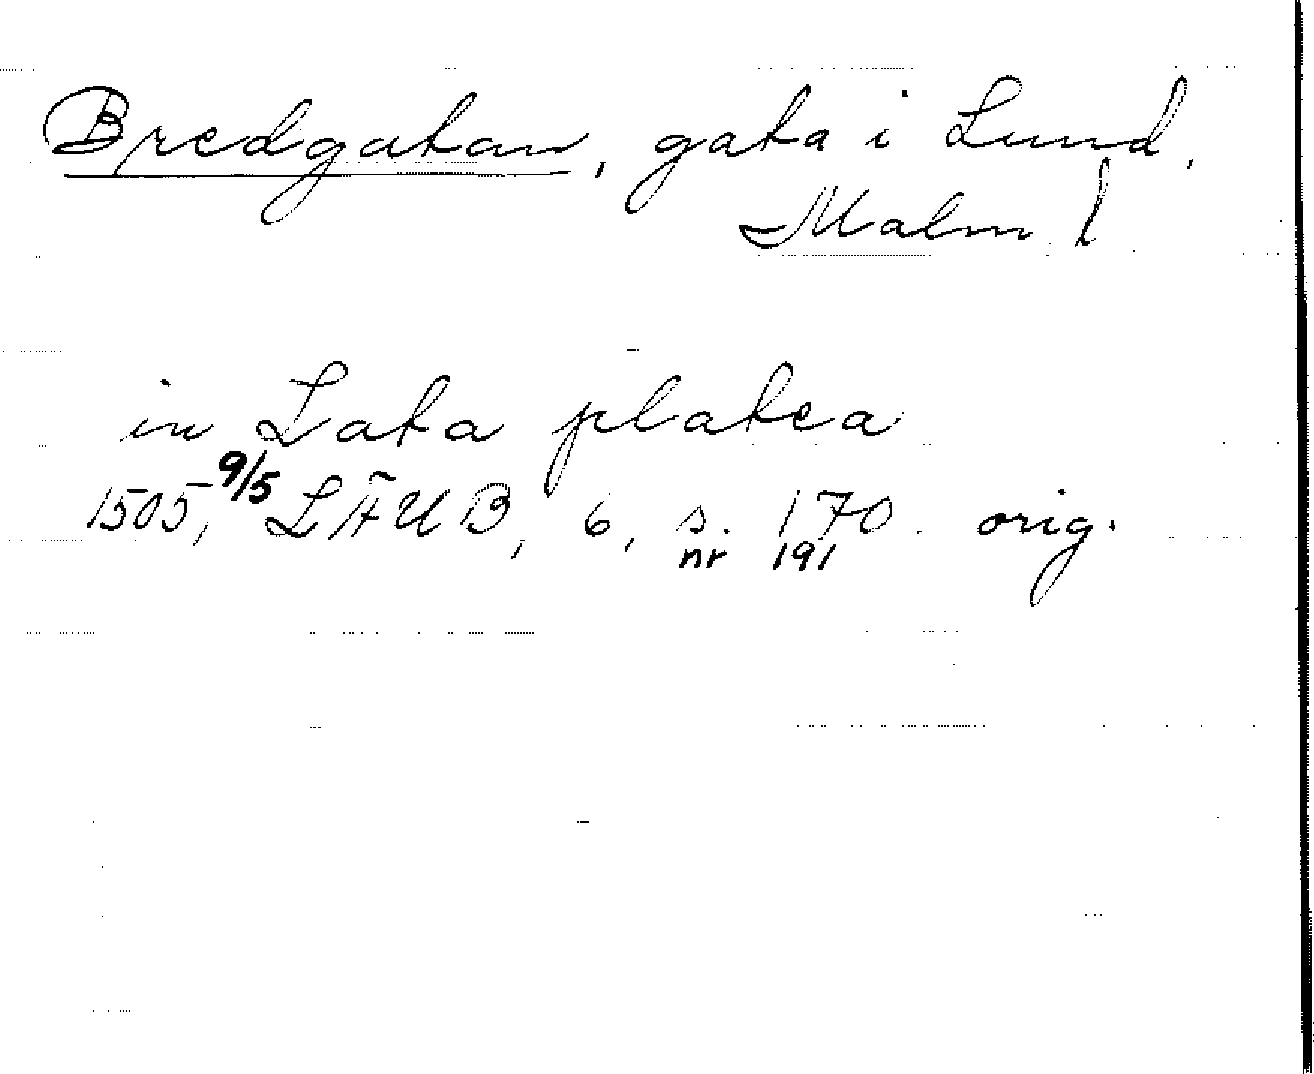 Bredgatan, gata i Lund,
Malm. l.
in Lata platea
1505, 9/5 LÄUB, 6, s. 170. orig.
nr 191